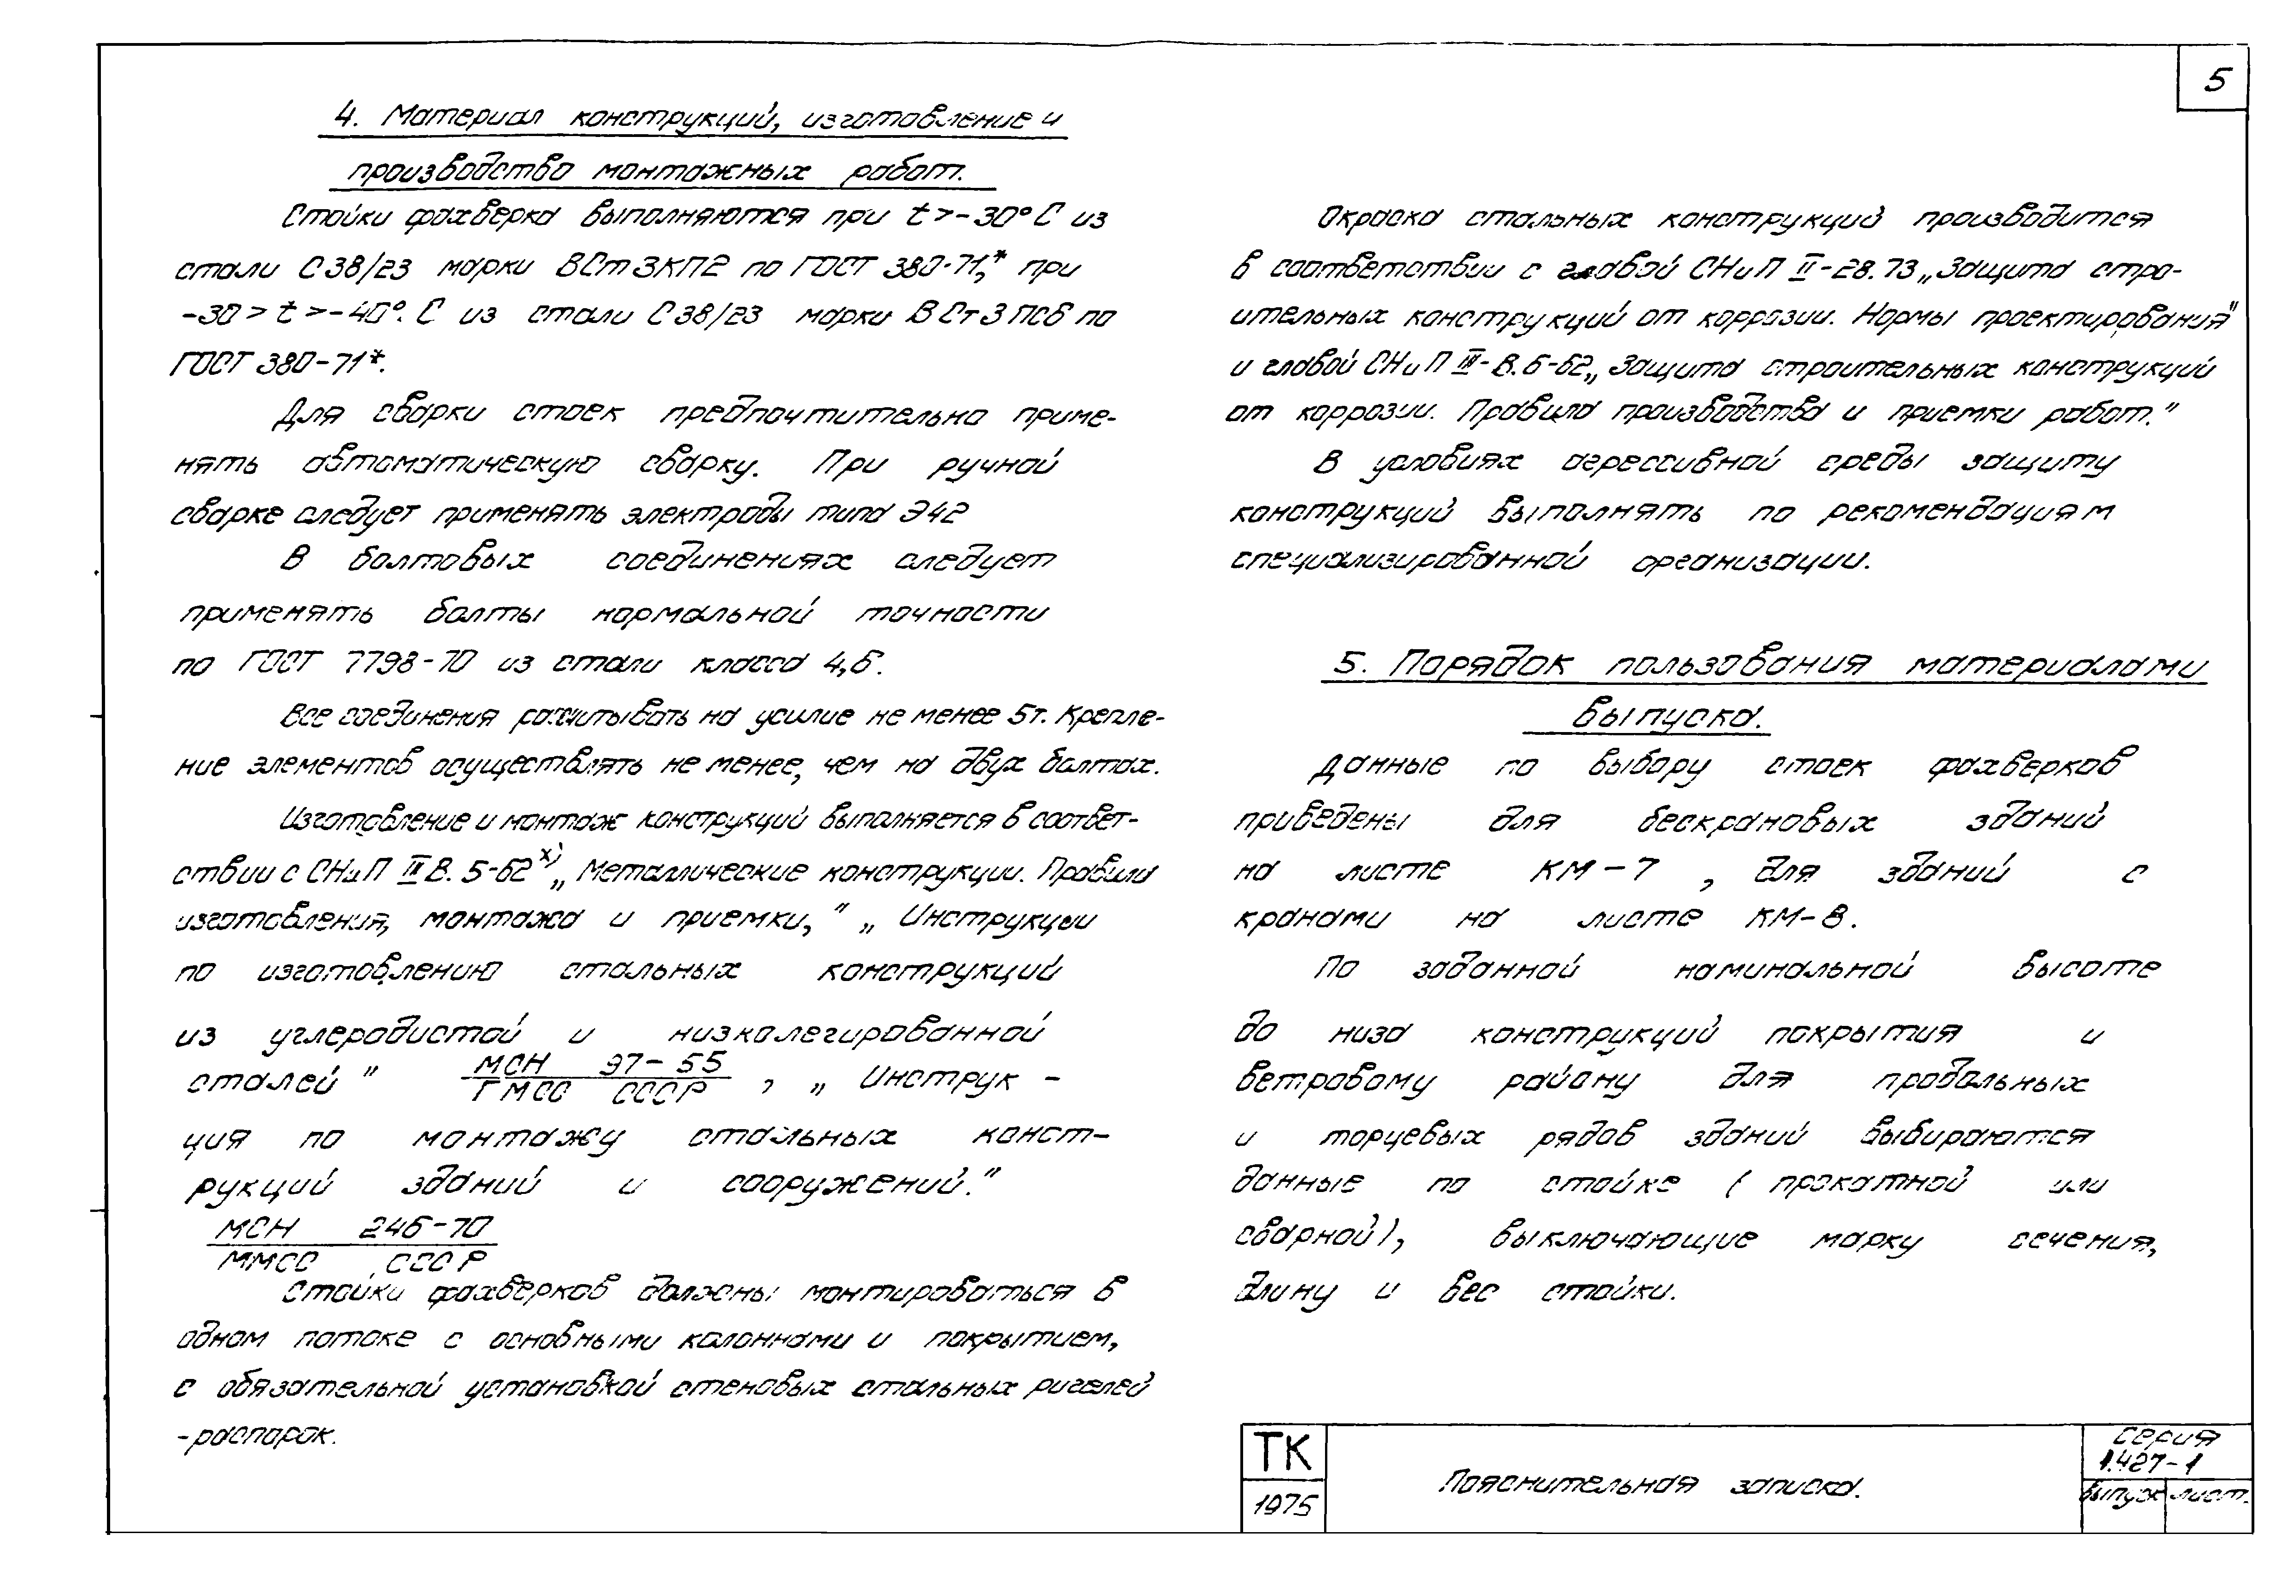 5
4. Материал конструкций, изготовление и
производство монтажных работ.
Стойки фахверка выполняются при t>-30°С из
стали С38/23 марки ВСт3КП2 по ГОСТ 380-71,* при
-30>t>-40°. С из стали С38/23 марки ВСт3ПС6 по
ГОСТ 380-71*.
Для сварки стоек предпочтительно приме-
нять автоматическую сварку. При ручной
сварке следует применять электроды типа Э42
В болтовых соединениях следует
применять болты нормальной точности
по ГОСТ 7798-70 из стали класса 4,6.
Все соединения рассчитывать на усилие не менее 5т. Крепле-
ние элементов осуществлять не менее, чем на двух болтах.
Изготовление и монтаж конструкций выполняется в соответ-
ствии с СНиП III В. 5-62х) „Металлические конструкции. Правила
изготовления, монтажа и приемки," „Инструкции
по изготовлению стальных конструкций
из углеродистой и низколегированной
сталей" МСН 97-55 / ГМСС СССР , „Инструк-
ция по монтажу стальных конст-
рукций зданий и сооружений."
МСН 246-70
ММСС СССР
Стойки фахверков должны монтироваться в
одном потоке с основными колоннами и покрытием,
с обязательной установкой стеновых стальных ригелей
-распорок.
Окраска стальных конструкций производится
в соответствии с главой СНиП II-28.73 „Защита стро-
ительных конструкций от коррозии. Нормы проектирования"
и главой СНиП III-В.6-62 „Защита строительных конструкций
от коррозии. Правила производства и приемки работ."
В условиях агрессивной среды защиту
конструкций выполнять по рекомендациям
специализированной организации.
5. Порядок пользования материалами
выпуска.
Данные по выбору стоек фахверков
приведены для бескрановых зданий
на листе КМ-7 , для зданий с
кранами на листе КМ-8.
По заданной номинальной высоте
до низа конструкций покрытия и
ветровому району для продольных
и торцевых рядов зданий выбираются
данные по стойке (прокатной или
сварной), выключающие марку сечения,
длину и вес стойки.
ТК
1975
Пояснительная записка.
серия
1.427-1
выпуск лист.